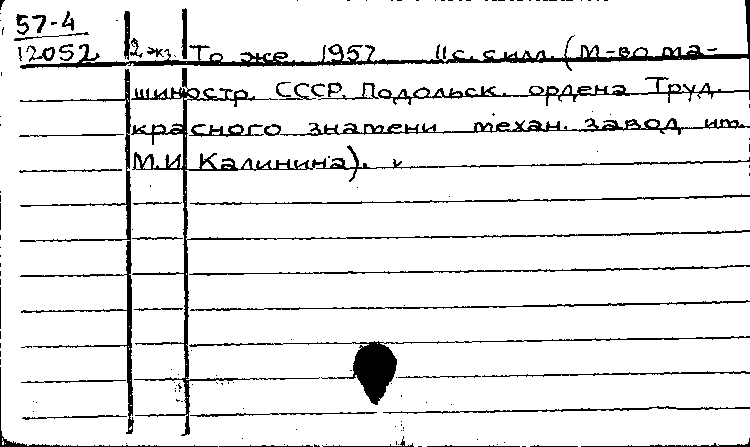 57-4
12052 2 экз. То же. 1957. 11 с. с илл. (М-во ма-
шиностр. СССР. Подольск. ордена Труд.
красного знамени механ. завод им.
М.И Калинина).